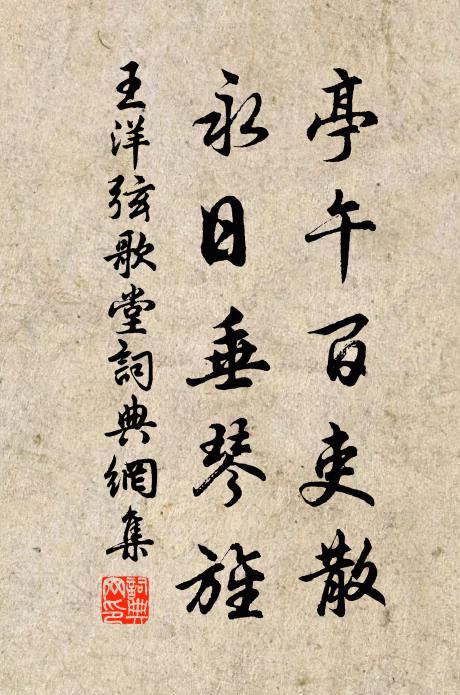 亭午百吏散
永日垂琴旌
王洋弦歌堂詞典網集
詞典
网印